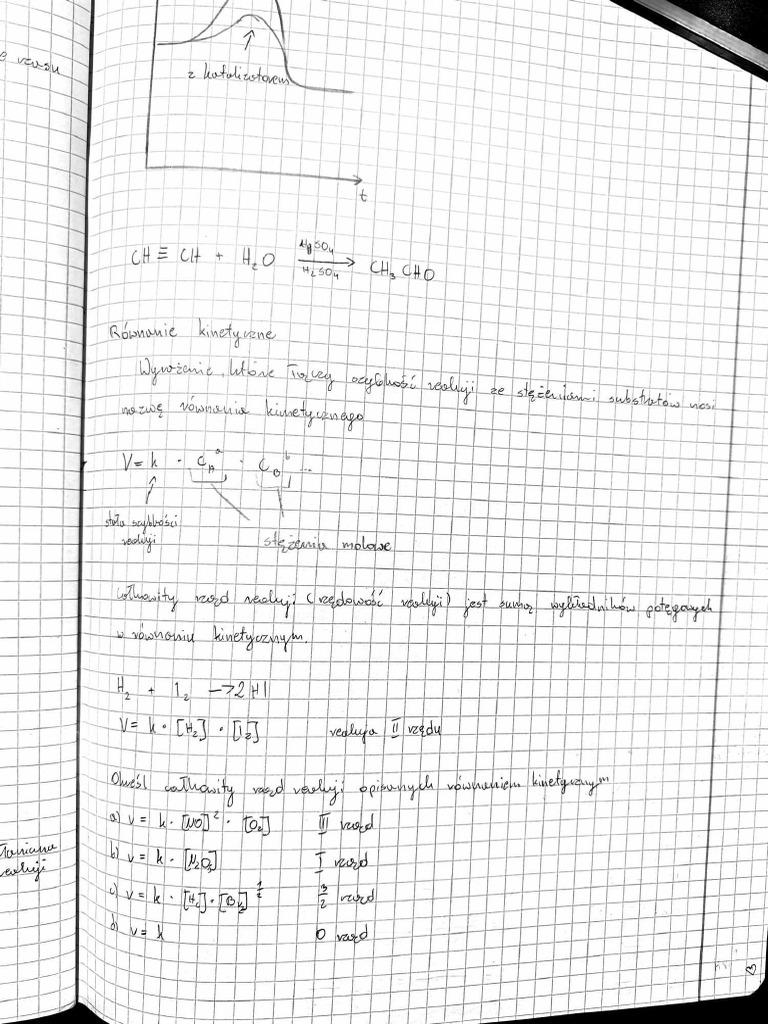 z katalizatorem
t
CH ≡ CH + H₂O HgSO₄ / H₂SO₄ → CH₃CHO
Równanie kinetyczne
Wyrażenie, które łączy szybkość reakcji ze stężeniami substratów nosi
nazwę równania kinetycznego
V = k · C_A^a · C_B^b ...
stała szybkości
reakcji
stężenia molowe
całkowity rząd reakcji (rzędowość reakcji) jest sumą wykładników potęgowych
w równaniu kinetycznym.
H₂ + I₂ → 2HI
V = k · [H₂] · [I₂] reakcja II rzędu
Określ całkowity rząd reakcji opisanych równaniem kinetycznym
a) v = k · [NO]² · [O₂] III rząd
b) v = k · [N₂O₅] I rząd
c) v = k · [H₂] · [Br₂]^½ 3/2 rząd
d) v = k 0 rząd